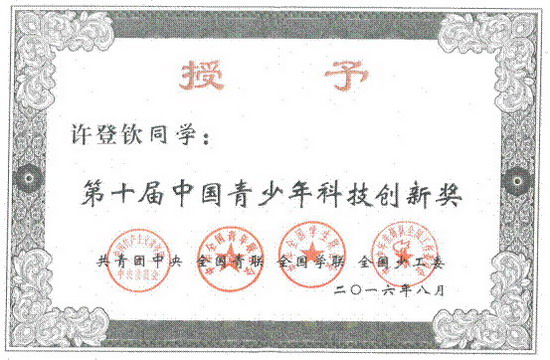 授 予
许登钦同学：
第十届中国青少年科技创新奖
共青团中央 全国青联 全国学联 全国少工委
二〇一六年八月